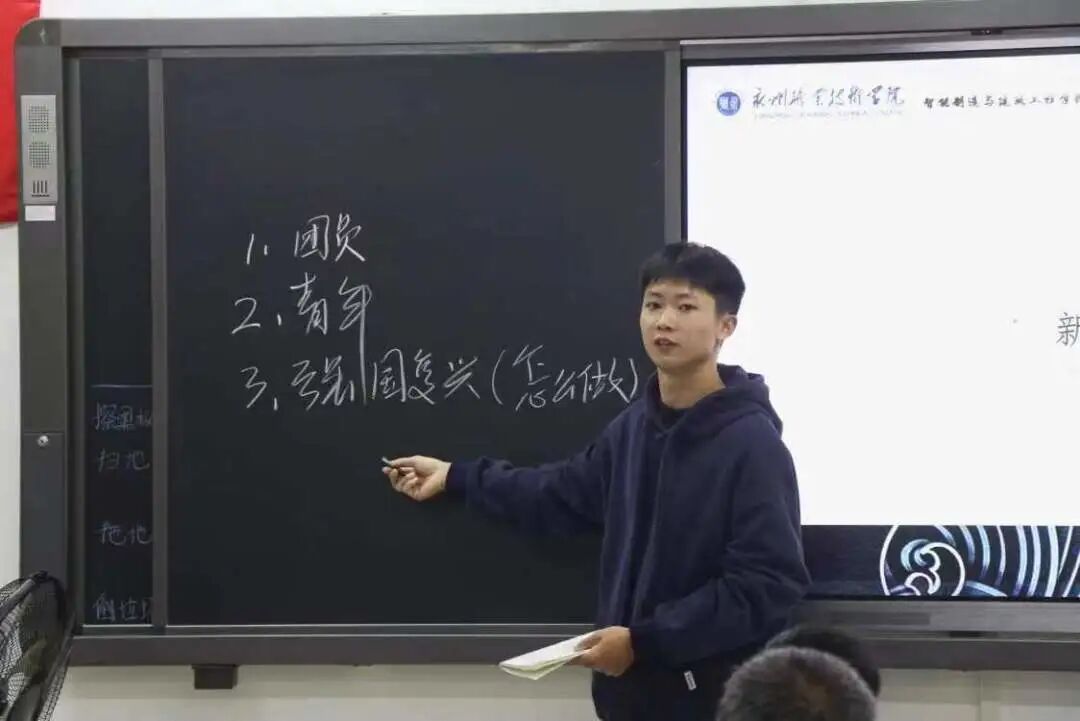 1、团员
2、青年
3、强国复兴（怎么做）
擦黑板
扫地
拖地
倒垃圾
永州职业技术学院
智能制造与建筑工程学院
新